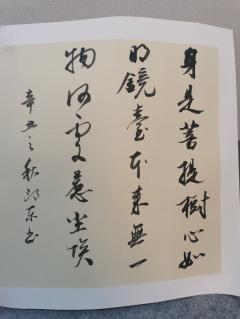 身是菩提樹心如
明鏡臺本來無一
物何處惹尘埃
辛丑之秋东书